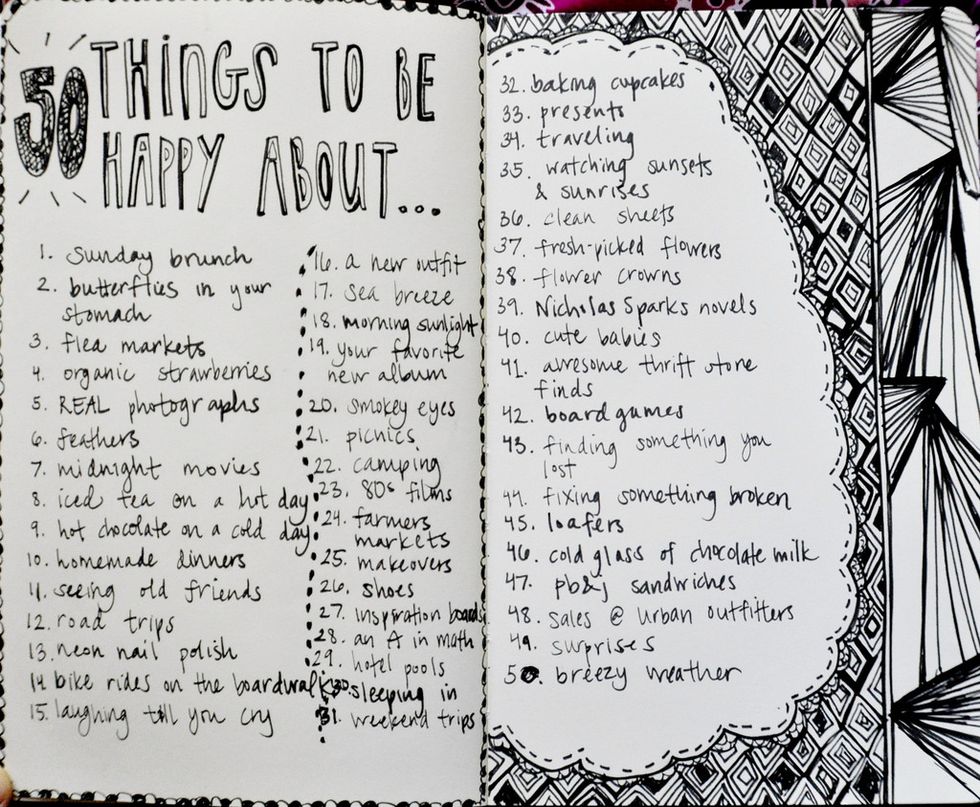 50 THINGS TO BE
HAPPY ABOUT...
1. Sunday brunch
2. butterflies in your
stomach
3. flea markets
4. organic strawberries
5. REAL photographs
6. feathers
7. midnight movies
8. iced tea on a hot day
9. hot chocolate on a cold day
10. homemade dinners
11. seeing old friends
12. road trips
13. neon nail polish
14 bike rides on the boardwalk
15. laughing till you cry
16. a new outfit
17. sea breeze
18. morning sunlight
19. your favorite
new album
20. smokey eyes
21. picnics
22. camping
23. 80s films
24. farmers
markets
25. makeovers
26. shoes
27. inspiration boards
28. an A in math
29. hotel pools
30. sleeping in
31. weekend trips
32. baking cupcakes
33. presents
34. traveling
35. watching sunsets
& sunrises
36. clean sheets
37. fresh-picked flowers
38. flower crowns
39. Nicholas Sparks novels
40. cute babies
41. awesome thrift store
finds
42. board games
43. finding something you
lost
44. fixing something broken
45. loafers
46. cold glass of chocolate milk
47. pb&j sandwiches
48. sales @ urban outfitters
49. surprises
50. breezy weather